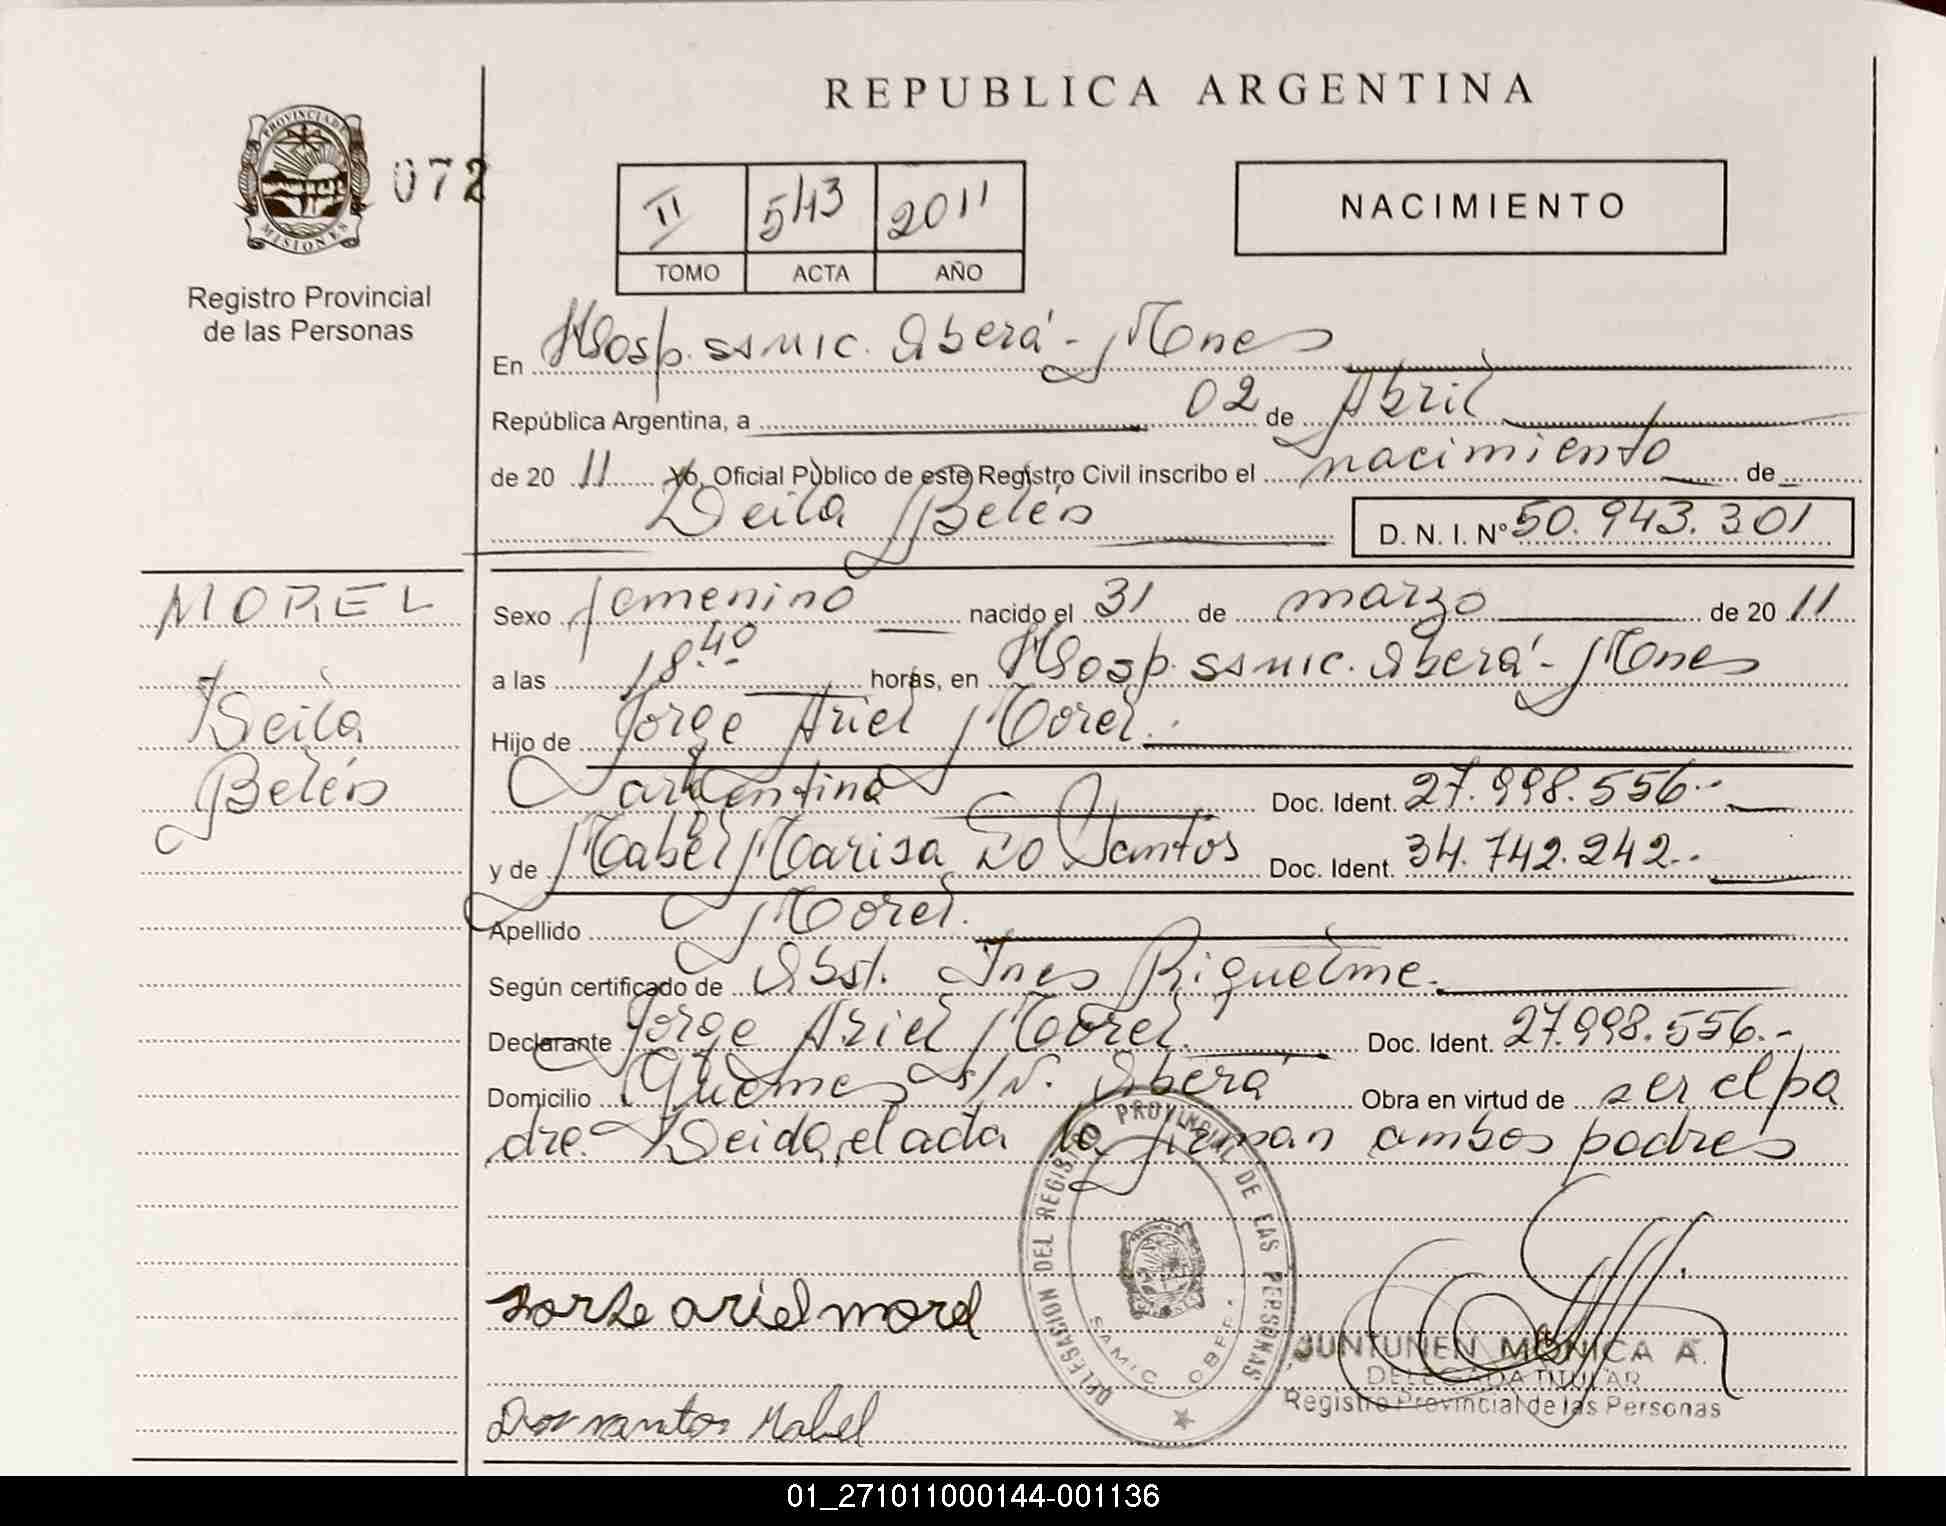 REPUBLICA ARGENTINA
PROVINCIA DE MISIONES
072
Registro Provincial
de las Personas
II 543 2011
TOMO ACTA AÑO
NACIMIENTO
En Hosp. SAMIC. Oberá - Mones
República Argentina, a 02 de Abril
de 20 11 Yo, Oficial Público de este Registro Civil inscribo el nacimiento de
Leila Belén
D. N. I. Nº 50.943.301
MOREL
Leila
Belén
Sexo femenino nacido el 31 de marzo de 20 11
a las 18.40 horas, en Hosp. SAMIC. Oberá - Mones
Hijo de Jorge Ariel Morel.
argentina Doc. Ident. 27.998.556.-
y de Mabel Marisa Do Santos Doc. Ident. 34.742.242.-
Apellido Morel.
Según certificado de Obst. Ines Riquelme.
Declarante Jorge Ariel Morel. Doc. Ident. 27.998.556.-
Domicilio Güemes s/N. Oberá Obra en virtud de ser el pa
dre. Leida, el acta la firman ambos padres
DELEGACION DEL REGISTRO PROVINCIAL DE LAS PERSONAS
SAMIC OBERA
Jorge ariel morel
Dos santos Mabel
JUNTUNEN MONICA A.
DELEGADA TITULAR
Registro Provincial de las Personas
01_271011000144-001136